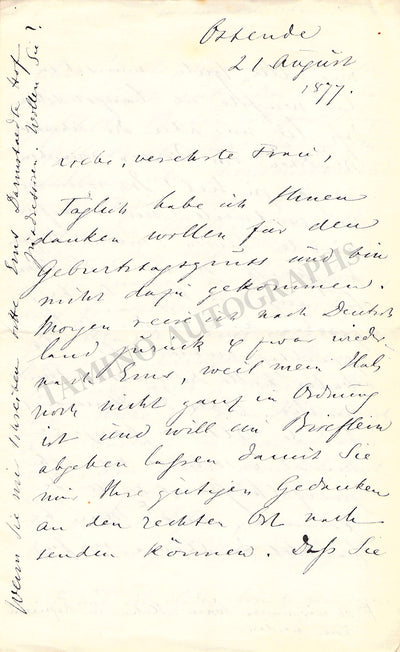 Ostende
21 August
1877.
Liebe, verehrte Frau,
Täglich habe ich Ihnen
danken wollen für den
Geburtstagsgruss und bin
nicht dazu gekommen.
Morgen reise ich nach Deutsch
land zurück & zwar wieder
nach Ems, weil mein Hals
noch nicht ganz in Ordnung
ist und will ein Brieflein
abgeben lassen damit Sie
mir Ihre gütigen Gedanken
an den rechten Ort nach
senden können. Dass Sie
Wenn Sie mir schreiben bitte Ems Darmstaedter Hof
zu adressiren. Wollen Sie?
TAMINO AUTOGRAPHS